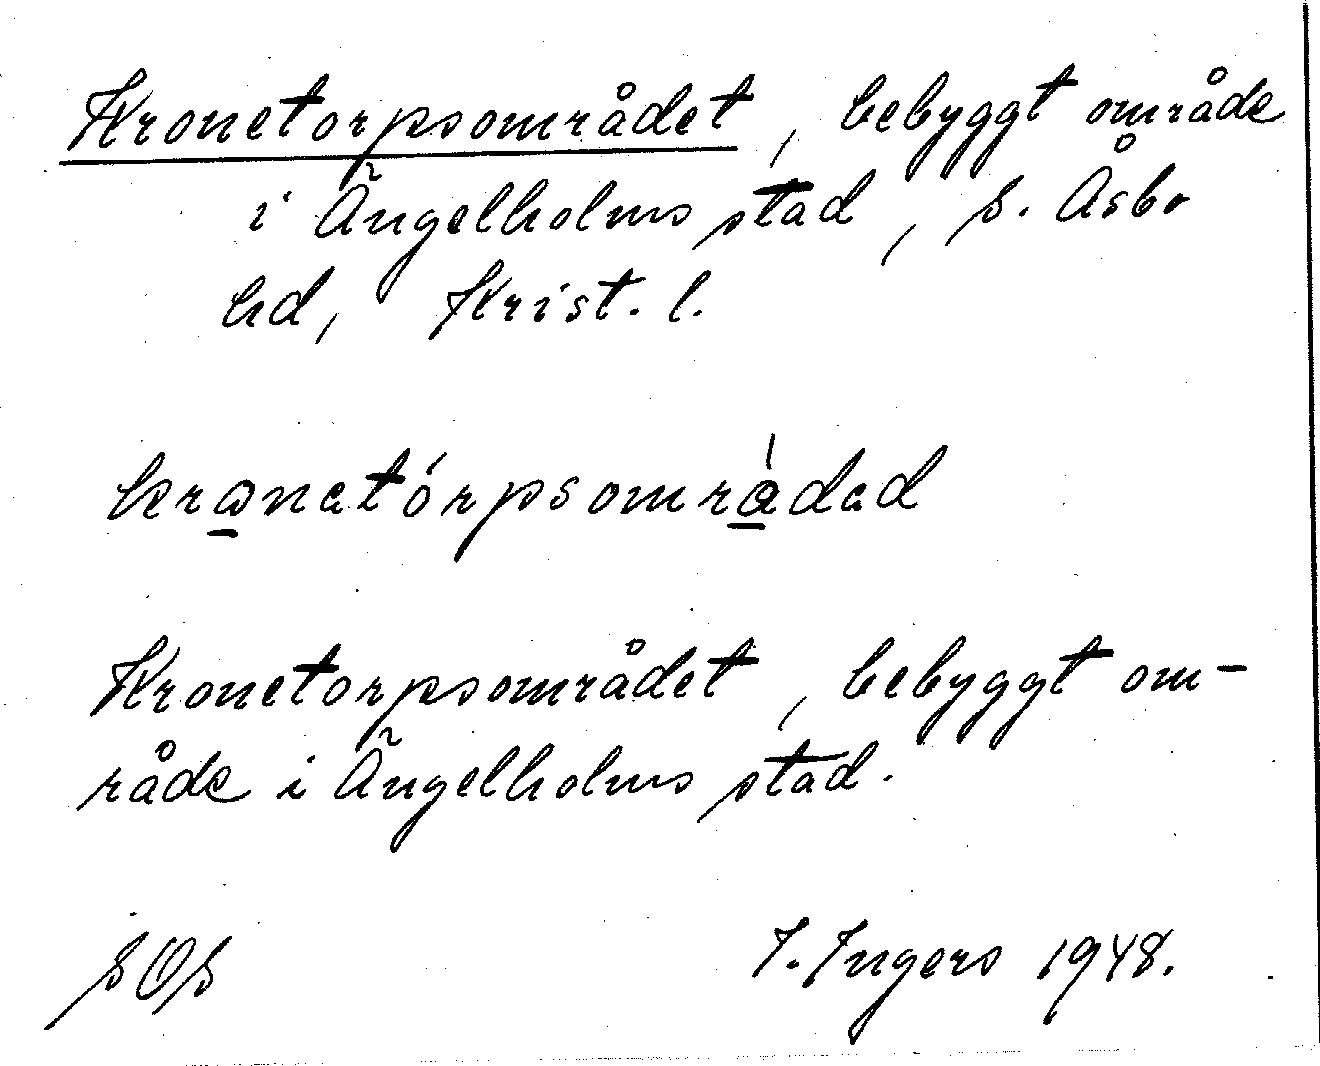 Kronetorpsområdet, bebyggt område
i Ängelholms stad, S. Åsbo
hd, Krist. l.
kranatórpsområdad
Kronetorpsområdet, bebyggt om-
råde i Ängelholms stad.
SOS I. Ingers 1948.